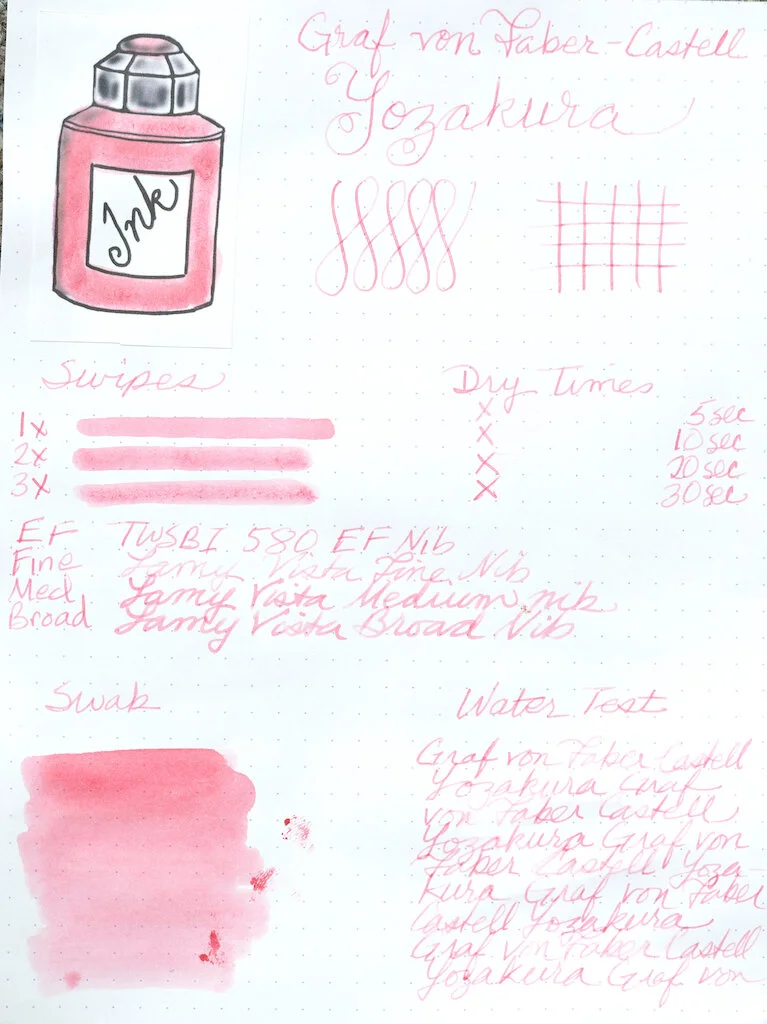 Graf von Faber-Castell
Yozakura
Ink
Swipes
1x
2x
3x
Dry Times
x 5sec
x 10sec
x 20sec
x 30sec
EF TWSBI 580 EF Nib
Fine Lamy Vista Fine Nib
Med Lamy Vista Medium nib
Broad Lamy Vista Broad Nib
Swab
Water Test
Graf von Faber Castell
Yozakura Graf
von Faber Castell
Yozakura Graf von
Faber Castell Yoza-
kura Graf von Faber
Castell Yozakura
Graf von Faber Castell
Yozakura Graf von